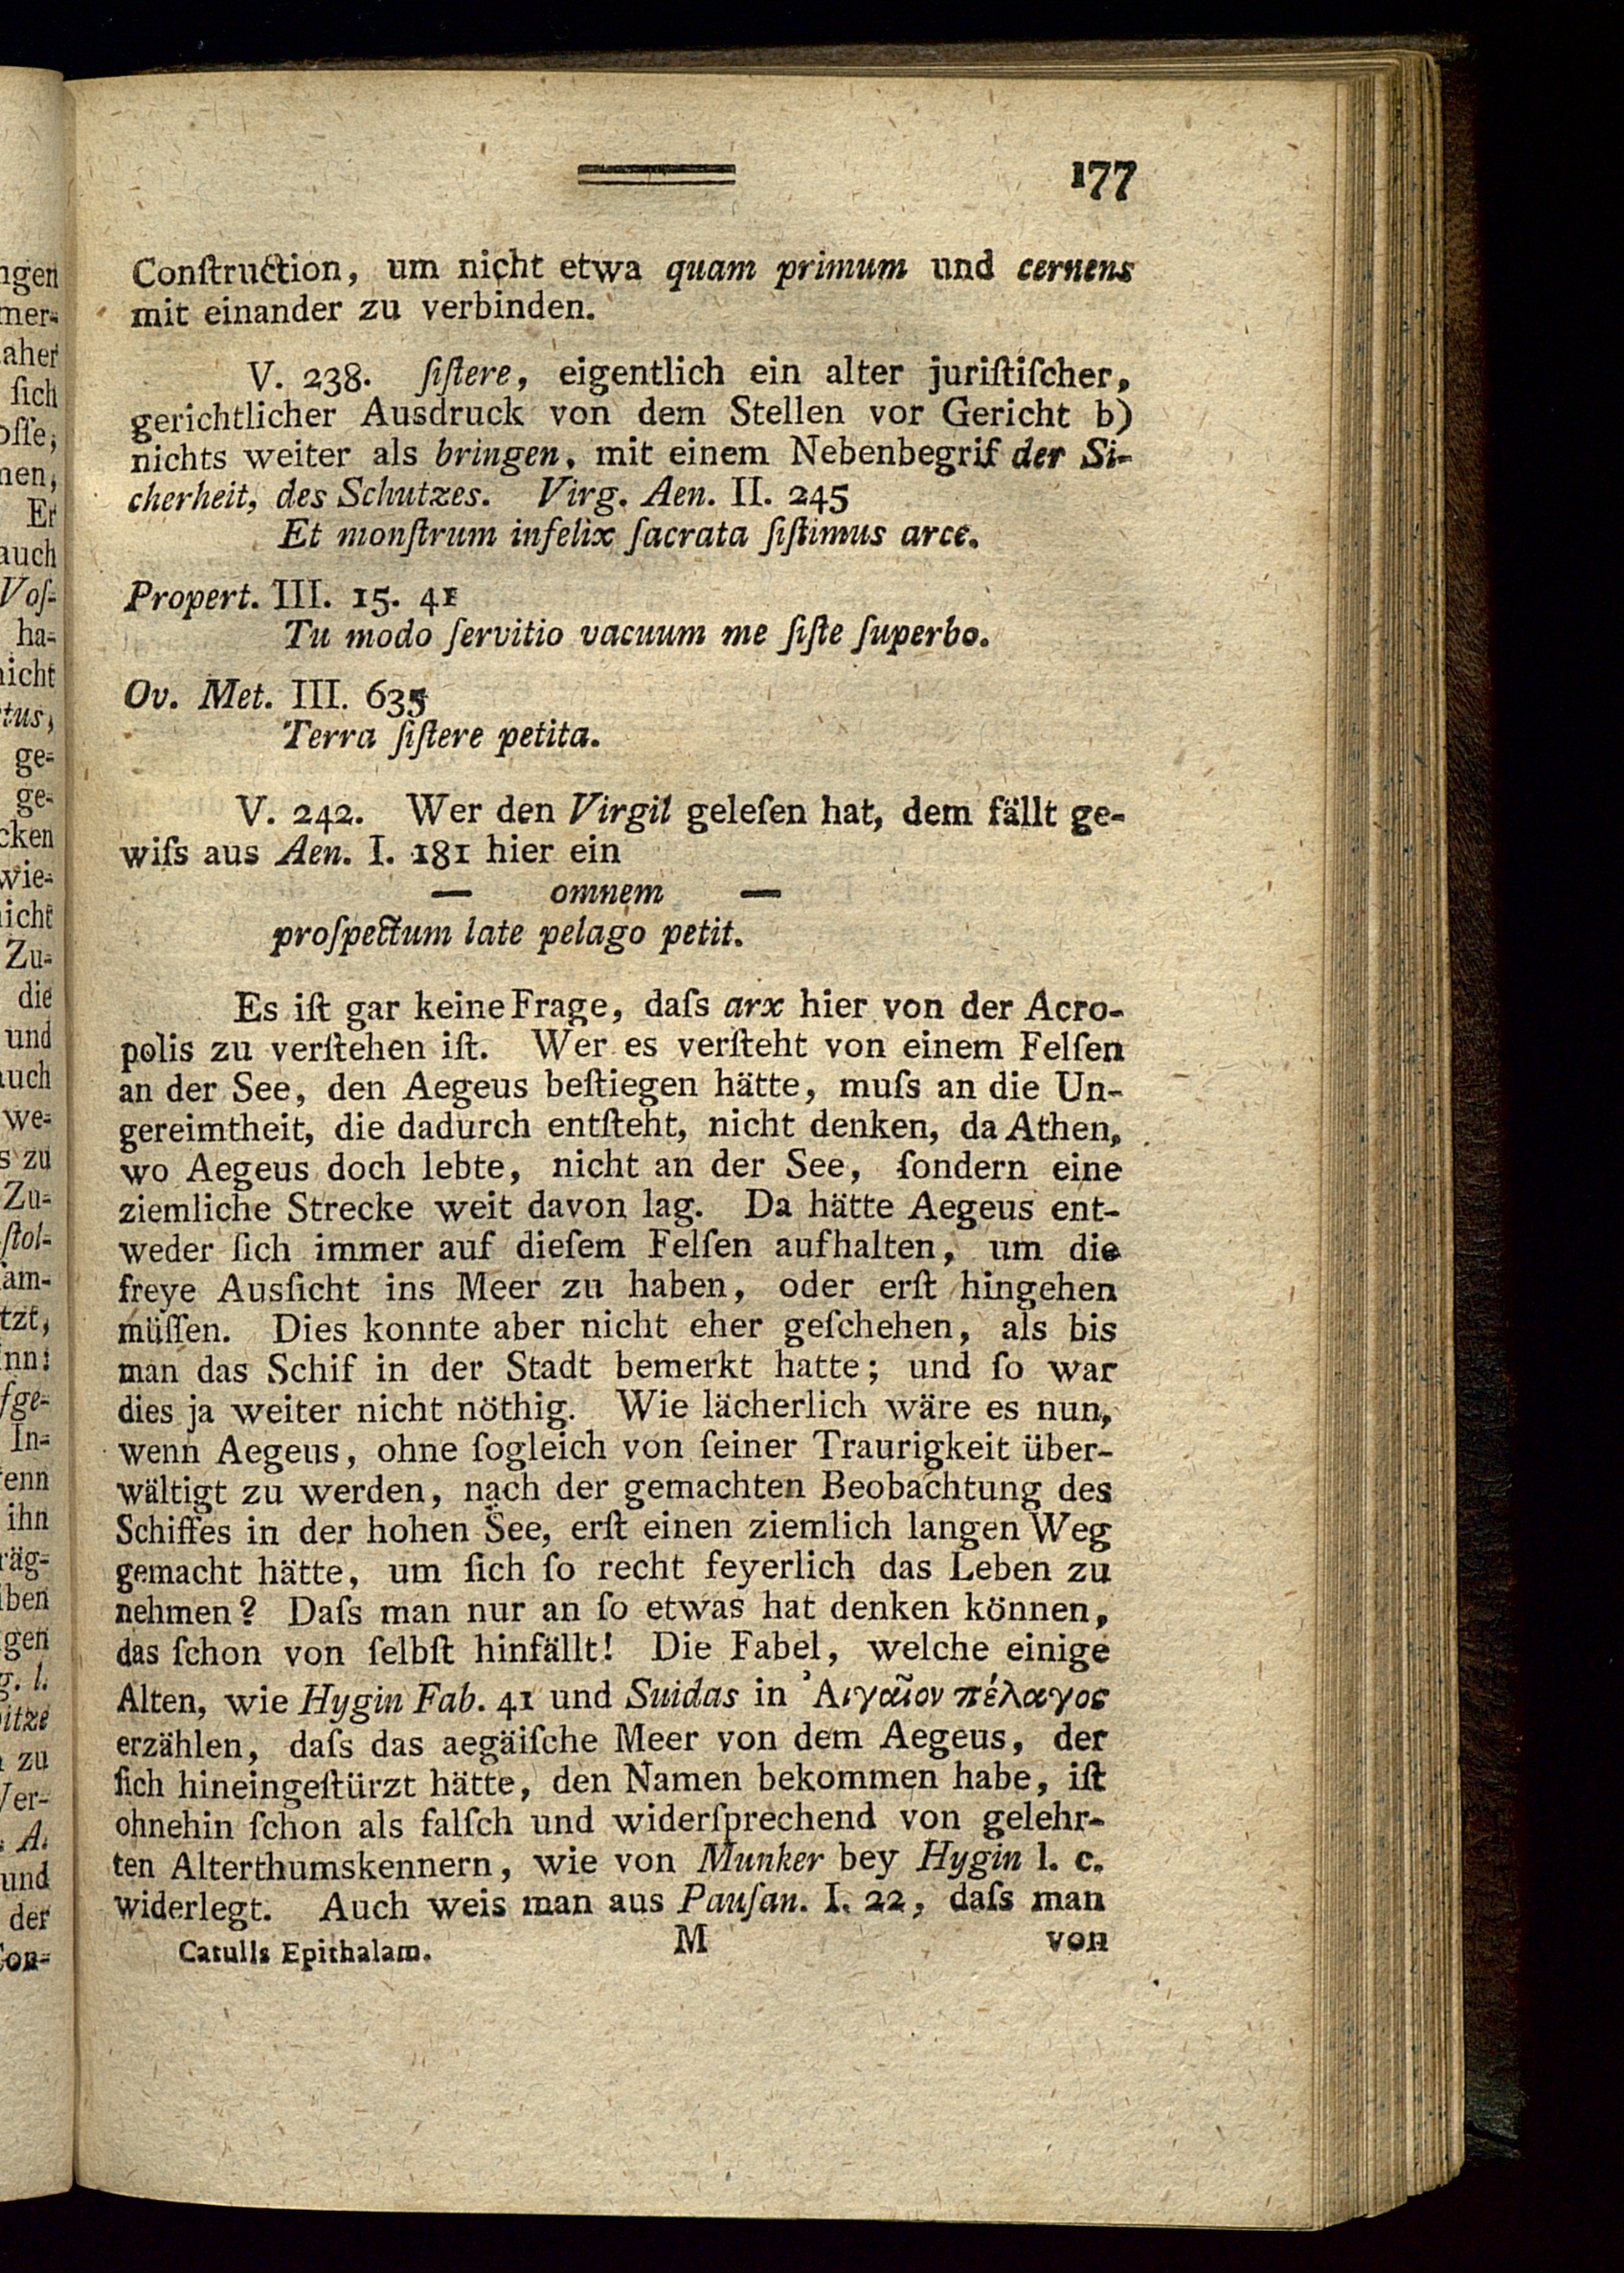 177
Conſtruction, um nicht etwa quam primum und cernens
mit einander zu verbinden.
V. 238. ſiſtere, eigentlich ein alter juriſtiſcher,
gerichtlicher Ausdruck von dem Stellen vor Gericht b)
nichts weiter als bringen, mit einem Nebenbegrif der Si-
cherheit, des Schutzes. Virg. Aen. II. 245
Et monſtrum infelix ſacrata ſiſtimus arce.
Propert. III. 15. 41
Tu modo ſervitio vacuum me ſiſte ſuperbo.
Ov. Met. III. 635
Terra ſiſtere petita.
V. 242. Wer den Virgil geleſen hat, dem fällt ge-
wiſs aus Aen. I. 181 hier ein
— omnem —
proſpectum late pelago petit.
Es iſt gar keine Frage, daſs arx hier von der Acro-
polis zu verſtehen iſt. Wer es verſteht von einem Felſen
an der See, den Aegeus beſtiegen hätte, muſs an die Un-
gereimtheit, die dadurch entſteht, nicht denken, da Athen,
wo Aegeus doch lebte, nicht an der See, ſondern eine
ziemliche Strecke weit davon lag. Da hätte Aegeus ent-
weder ſich immer auf dieſem Felſen aufhalten, um die
freye Ausſicht ins Meer zu haben, oder erſt hingehen
müſſen. Dies konnte aber nicht eher geſchehen, als bis
man das Schif in der Stadt bemerkt hatte; und ſo war
dies ja weiter nicht nöthig. Wie lächerlich wäre es nun,
wenn Aegeus, ohne ſogleich von ſeiner Traurigkeit über-
wältigt zu werden, nach der gemachten Beobachtung des
Schiffes in der hohen See, erſt einen ziemlich langen Weg
gemacht hätte, um ſich ſo recht feyerlich das Leben zu
nehmen? Daſs man nur an ſo etwas hat denken können,
das ſchon von ſelbſt hinfällt! Die Fabel, welche einige
Alten, wie Hygin Fab. 41 und Suidas in Ἀιγαῖον πέλαγος
erzählen, daſs das aegäiſche Meer von dem Aegeus, der
ſich hineingeſtürzt hätte, den Namen bekommen habe, iſt
ohnehin ſchon als falſch und widerſprechend von gelehr-
ten Alterthumskennern, wie von Munker bey Hygin l. c.
widerlegt. Auch weis man aus Pauſan. I. 22, daſs man
Catulls Epithalam. M von